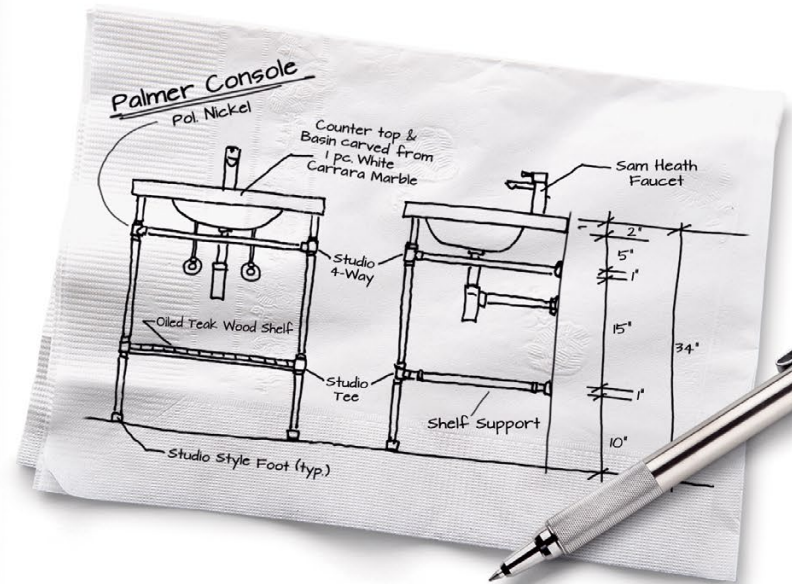 Palmer Console
Pol. Nickel
Counter top &
Basin carved from
1 pc. White
Carrara Marble
Sam Heath
Faucet
Studio
4-Way
Oiled Teak Wood Shelf
Studio
Tee
Shelf Support
Studio Style Foot (typ.)
2"
5"
1"
15"
34"
1"
10"